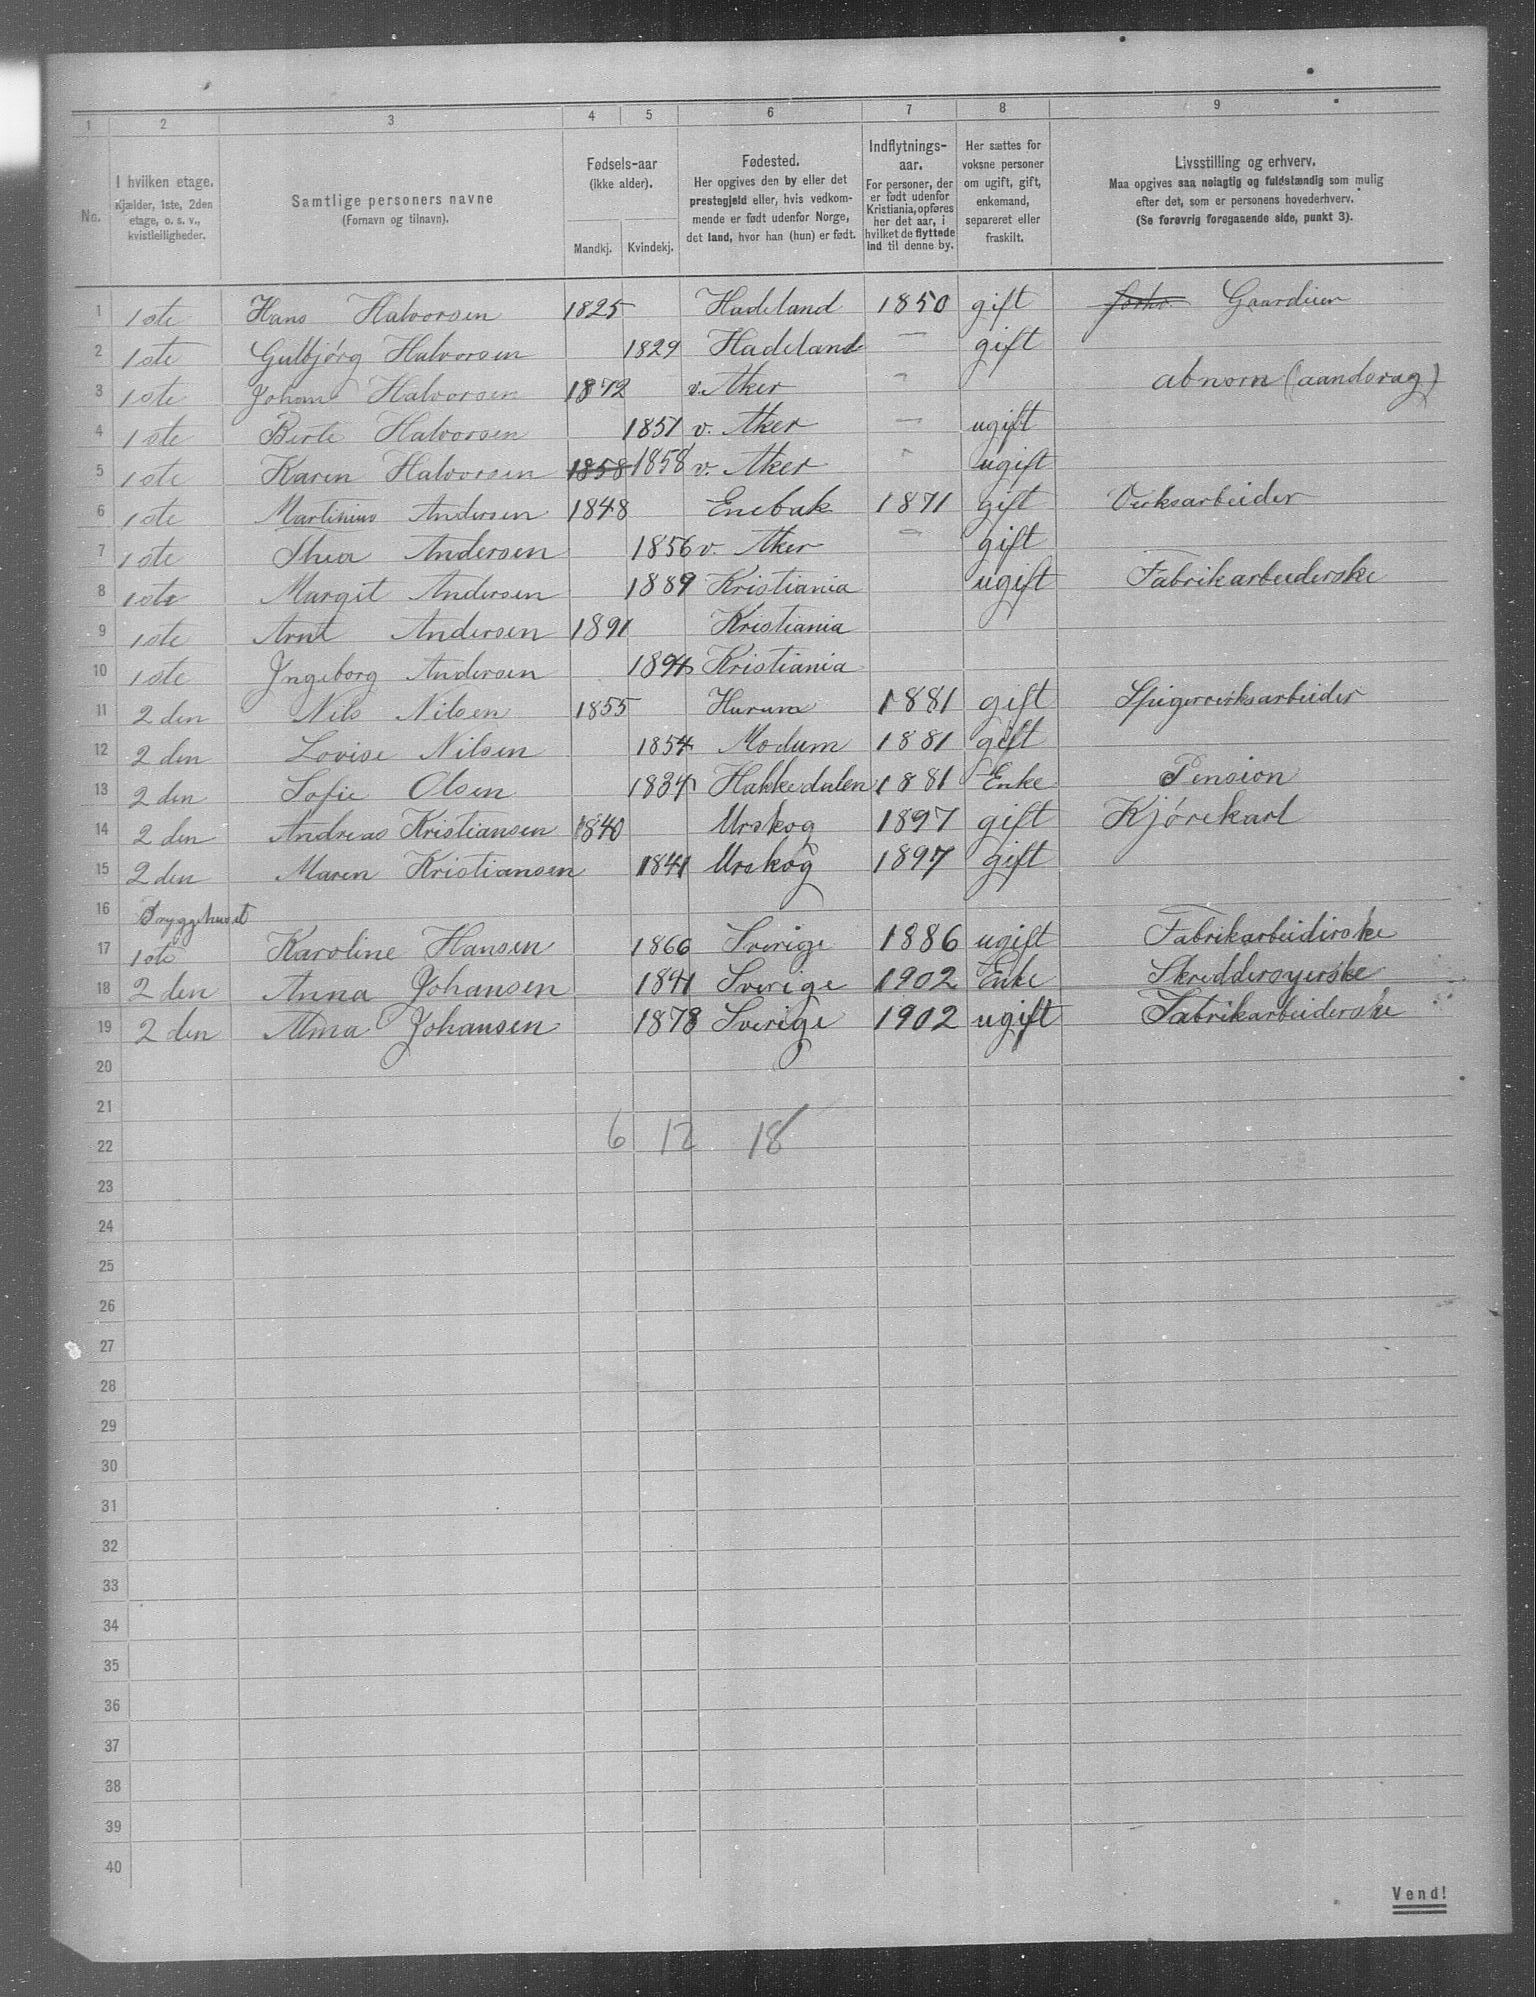 1 2 3 4 5 6 7 8 9
No. I hvilken etage. Kjælder, 1ste, 2den etage, o. s. v., kvistleiligheder. Samtlige personers navne (Fornavn og tilnavn). Fødsels-aar (ikke alder). Mandkj. Kvindekj. Fødested. Her opgives den by eller det prestegjeld eller, hvis vedkommende er født udenfor Norge, det land, hvor han (hun) er født. Indflytnings-aar. For personer, der er født udenfor Kristiania, opføres her det aar, i hvilket de flyttede ind til denne by. Her sættes for voksne personer om ugift, gift, enkemand, separeret eller fraskilt. Livsstilling og erhverv. Maa opgives saa nøiagtig og fuldstændig som mulig efter det, som er personens hovederhverv. (Se forøvrig foregaaende side, punkt 3).
1 1ste Hans Halvorsen 1825 Hadeland 1850 gift Gaardeier
2 1ste Gulbjørg Halvorsen 1829 Hadeland — gift
3 1ste Johan Halvorsen 1872 v. Aker " abnorm (aandsvag)
4 1ste Berte Halvorsen 1851 v. Aker — ugift
5 1ste Karen Halvorsen 1858 1858 v. Aker " ugift
6 1ste Martinius Andersen 1848 Enebak 1871 gift Verksarbeider
7 1ste Thea Andersen 1856 v. Aker — gift
8 1ste Margit Andersen 1889 Kristiania ugift Fabrikarbeiderske
9 1ste Arnt Andersen 1891 Kristiania
10 1ste Ingeborg Andersen 1894 Kristiania
11 2den Nils Nilsen 1855 Hurum 1881 gift Spigerverksarbeider
12 2den Lovise Nilsen 1854 Modum 1881 gift
13 2den Sofie Olsen 1834 Hakkedalen 1881 Enke Pension
14 2den Andreas Kristiansen 1840 Urskog 1897 gift Kjørekarl
15 2den Maren Kristiansen 1841 Urskog 1897 gift
16 Bryggehuset
17 1ste Karoline Hansen 1866 Sverige 1886 ugift Fabrikarbeiderske
18 2den Anna Johansen 1841 Sverige 1902 Enke Skreddersyerske
19 2den Alma Johansen 1878 Sverige 1902 ugift Fabrikarbeiderske
20
21
22 6 12 18
23
24
25
26
27
28
29
30
31
32
33
34
35
36
37
38
39
40
Vend!